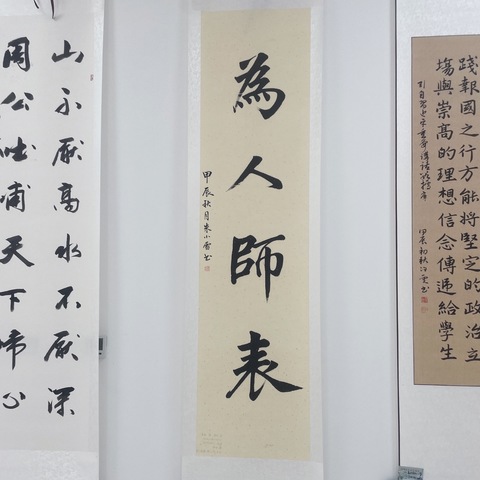 踐報國之行方能將堅定的政治立
塲與崇高的理想信念傳遞給學生
甲辰初秋
為人師表
甲辰秋月
山不厭高水不厭深
周公吐哺天下帰心